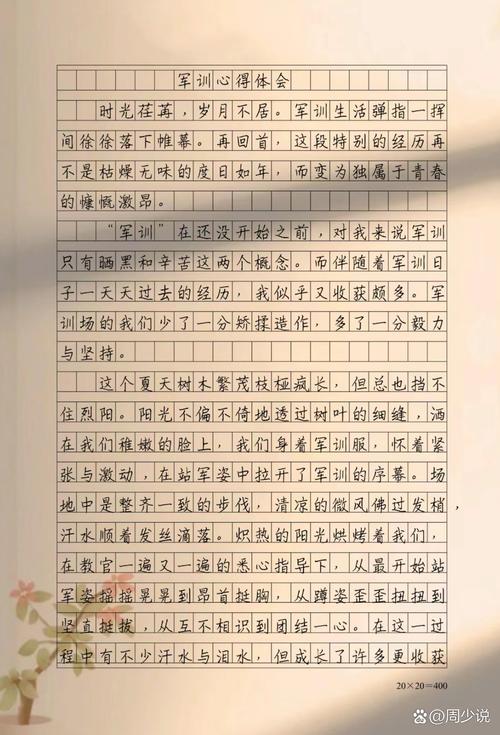 军训心得体会
时光荏苒，岁月不居。军训生活弹指一挥
间徐徐落下帷幕。再回首，这段特别的经历再
不是枯燥无味的度日如年，而变为独属于青春
的慷慨激昂。
“军训”在还没开始之前，对我来说军训
只有晒黑和辛苦这两个概念。而伴随着军训日
子一天天过去的经历，我似乎又收获颇多。军
训场的我们少了一分矫揉造作，多了一分毅力
与坚持。
这个夏天树木繁茂枝桠疯长，但总也挡不
住烈阳。阳光不偏不倚地透过树叶的细缝，洒
在我们稚嫩的脸上，我们身着军训服，怀着紧
张与激动，在站军姿中拉开了军训的序幕。场
地中是整齐一致的步伐，清凉的微风佛过发梢，
汗水顺着发丝滴落。炽热的阳光烘烤着我们，
在教官一遍又一遍的悉心指导下，从最开始站
军姿摇摇晃晃到昂首挺胸，从蹲姿歪歪扭扭到
坚直挺拔，从互不相识到团结一心。在这一过
程中有不少汗水与泪水，但成长了许多更收获
20×20=400
周少说